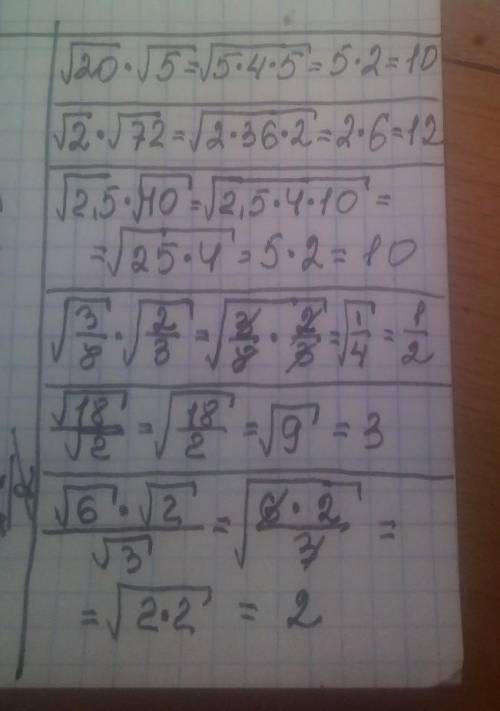 √20 · √5 = √5·4·5 = 5·2 = 10
√2 · √72 = √2·36·2 = 2·6 = 12
√2,5 · √40 = √2,5·4·10 =
= √25·4 = 5·2 = 10
√3/8 · √2/3 = √3/8 · 2/3 = √1/4 = 1/2
√18/√2 = √18/2 = √9 = 3
√6 · √2/√3 = √6·2/3 =
= √2·2 = 2